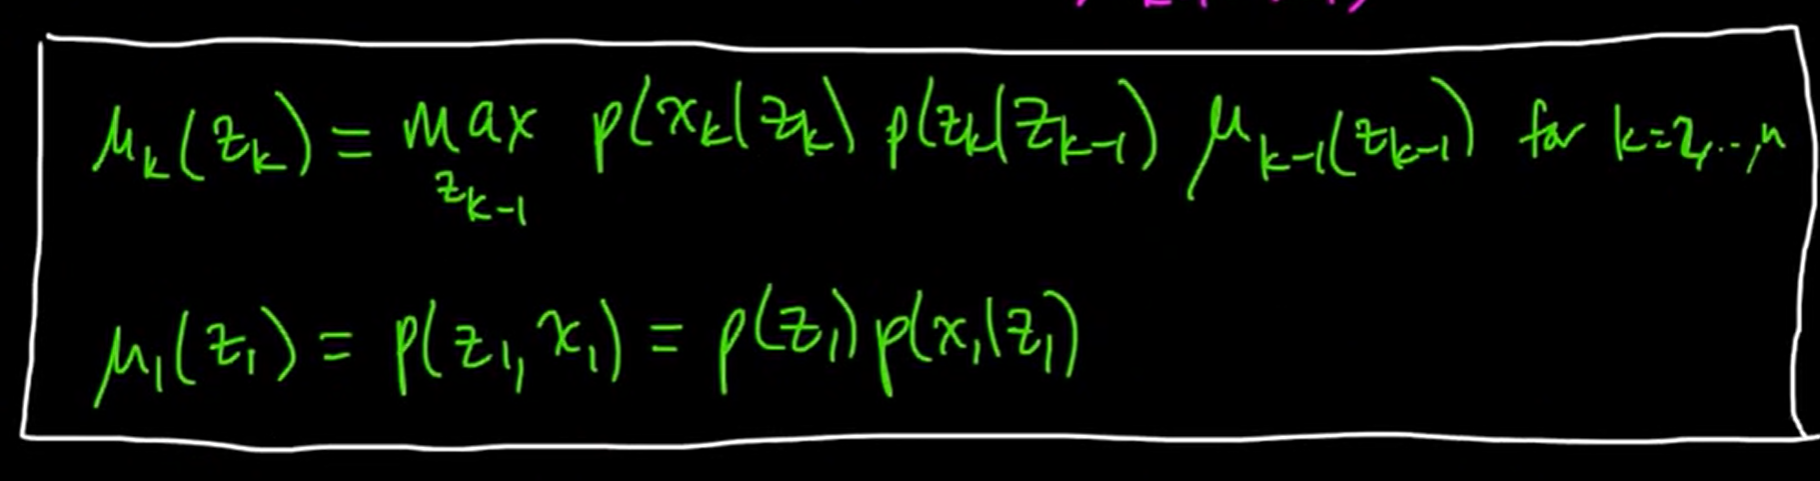 μ_k(z_k) = max_{z_{k-1}} p(x_k|z_k) p(z_k|z_{k-1}) μ_{k-1}(z_{k-1}) for k=2,..,n
μ_1(z_1) = p(z_1, x_1) = p(z_1) p(x_1|z_1)